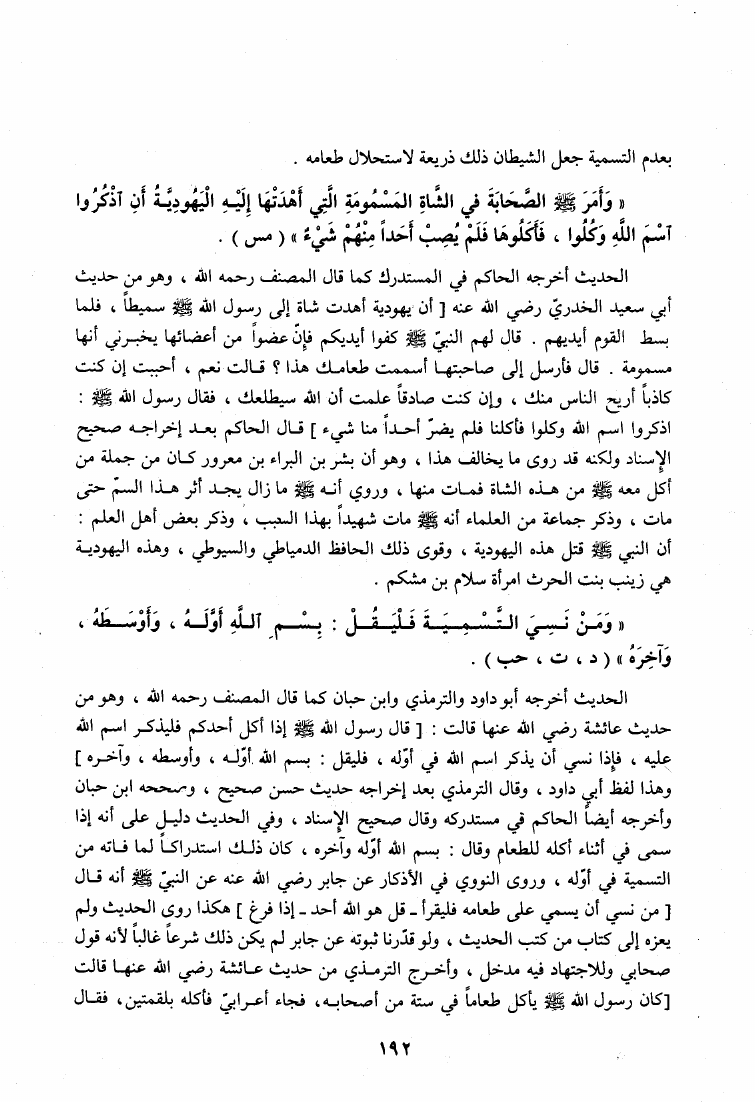 بعدم التسمية جعل الشيطان ذلك ذريعة لاستحلال طعامه .
« وَأَمَرَ ﷺ الصَّحَابَةَ في الشَّاةِ المَسْمُومَةِ الَّتي أَهْدَتْهَا إِلَيْهِ الْيَهُودِيَّةُ أَنِ آذْكُرُوا
آسْمَ اللَّهِ وَكُلُوا ، فَأَكَلُوهَا فَلَمْ يُصِبْ أَحَداً مِنْهُمْ شَيْءٌ » ( مس ) .
الحديث أخرجه الحاكم في المستدرك كما قال المصنف رحمه الله ، وهو من حديث
أبي سعيد الخدريّ رضي الله عنه [ أن يهودية أهدت شاة إلى رسول الله ﷺ سميطاً ، فلما
بسط القوم أيديهم . قال لهم النبيّ ﷺ كفوا أيديكم فإنّ عضواً من أعضائها يخبرني أنها
مسمومة . قال فأرسل إلى صاحبتها أسممت طعامك هذا ؟ قالت نعم ، أحببت إن كنت
كاذباً أريح الناس منك ، وإن كنت صادقاً علمت أن الله سيطلعك ، فقال رسول الله ﷺ :
اذكروا اسم الله وكلوا فأكلنا فلم يضرّ أحداً منا شيء ] قال الحاكم بعد إخراجه صحيح
الإسناد ولكنه قد روى ما يخالف هذا ، وهو أن بشر بن البراء بن معرور كان من جملة من
أكل معه ﷺ من هذه الشاة فمات منها ، وروي أنه ﷺ ما زال يجد أثر هذا السمّ حتى
مات ، وذكر جماعة من العلماء أنه ﷺ مات شهيداً بهذا السبب ، وذكر بعض أهل العلم :
أن النبي ﷺ قتل هذه اليهودية ، وقوى ذلك الحافظ الدمياطي والسيوطي ، وهذه اليهودية
هي زينب بنت الحرث امرأة سلام بن مشكم .
« وَمَنْ نَسِيَ التَّسْمِيَةَ فَلْيَقُلْ : بِسْمِ اللَّهِ أَوَّلَهُ ، وَأَوْسَطَهُ ،
وَآخِرَهُ » ( د ، ت ، حب ) .
الحديث أخرجه أبو داود والترمذي وابن حبان كما قال المصنف رحمه الله ، وهو من
حديث عائشة رضي الله عنها قالت : [ قال رسول الله ﷺ إذا أكل أحدكم فليذكر اسم الله
عليه ، فإذا نسي أن يذكر اسم الله في أوّله ، فليقل : بسم الله أوّله ، وأوسطه ، وآخره ]
وهذا لفظ أبي داود ، وقال الترمذي بعد إخراجه حديث حسن صحيح ، وصححه ابن حبان
وأخرجه أيضاً الحاكم في مستدركه وقال صحيح الإسناد ، وفي الحديث دليل على أنه إذا
سمى في أثناء أكله للطعام وقال : بسم الله أوّله وآخره ، كان ذلك استدراكاً لما فاته من
التسمية في أوّله ، وروى النووي في الأذكار عن جابر رضي الله عنه عن النبيّ ﷺ أنه قال
[ من نسي أن يسمي على طعامه فليقرأ ـ قل هو الله أحد ـ إذا فرغ ] هكذا روى الحديث ولم
يعزه إلى كتاب من كتب الحديث ، ولو قدّرنا ثبوته عن جابر لم يكن ذلك شرعاً غالباً لأنه قول
صحابي وللاجتهاد فيه مدخل ، وأخرج الترمذي من حديث عائشة رضي الله عنها قالت
[كان رسول الله ﷺ يأكل طعاماً في ستة من أصحابه، فجاء أعرابيّ فأكله بلقمتين، فقال
١٩٢